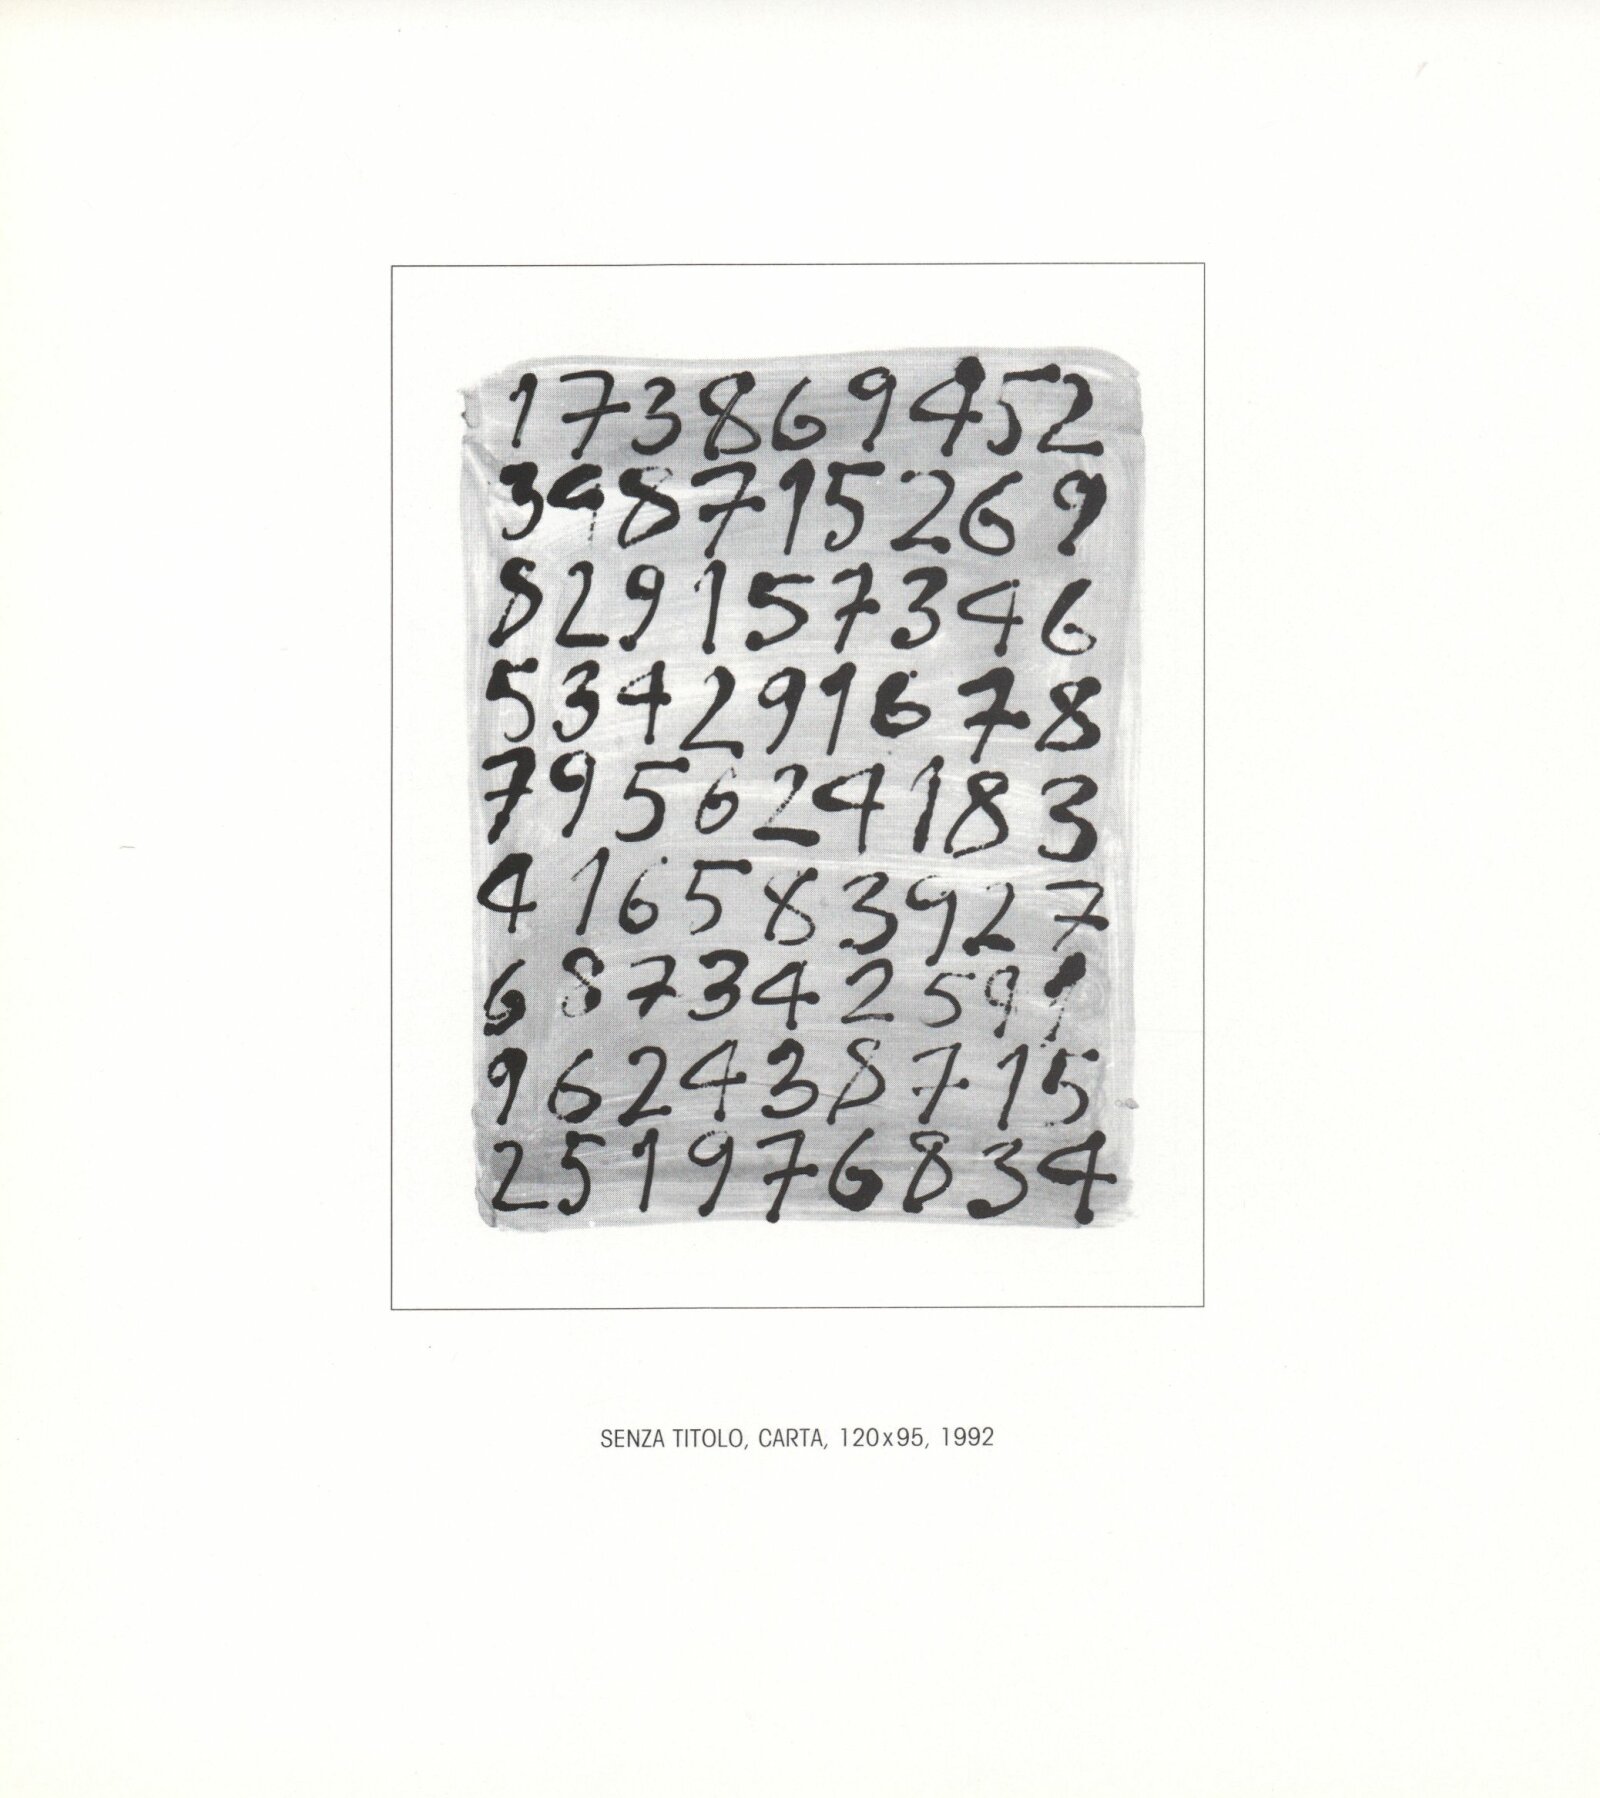 1 7 3 8 6 9 4 5 2
3 4 8 7 1 5 2 6 9
8 2 9 1 5 7 3 4 6
5 3 4 2 9 1 6 7 8
7 9 5 6 2 4 1 8 3
4 1 6 5 8 3 9 2 7
6 8 7 3 4 2 5 9 1
9 6 2 4 3 8 7 1 5
2 5 1 9 7 6 8 3 4
SENZA TITOLO, CARTA, 120x95, 1992